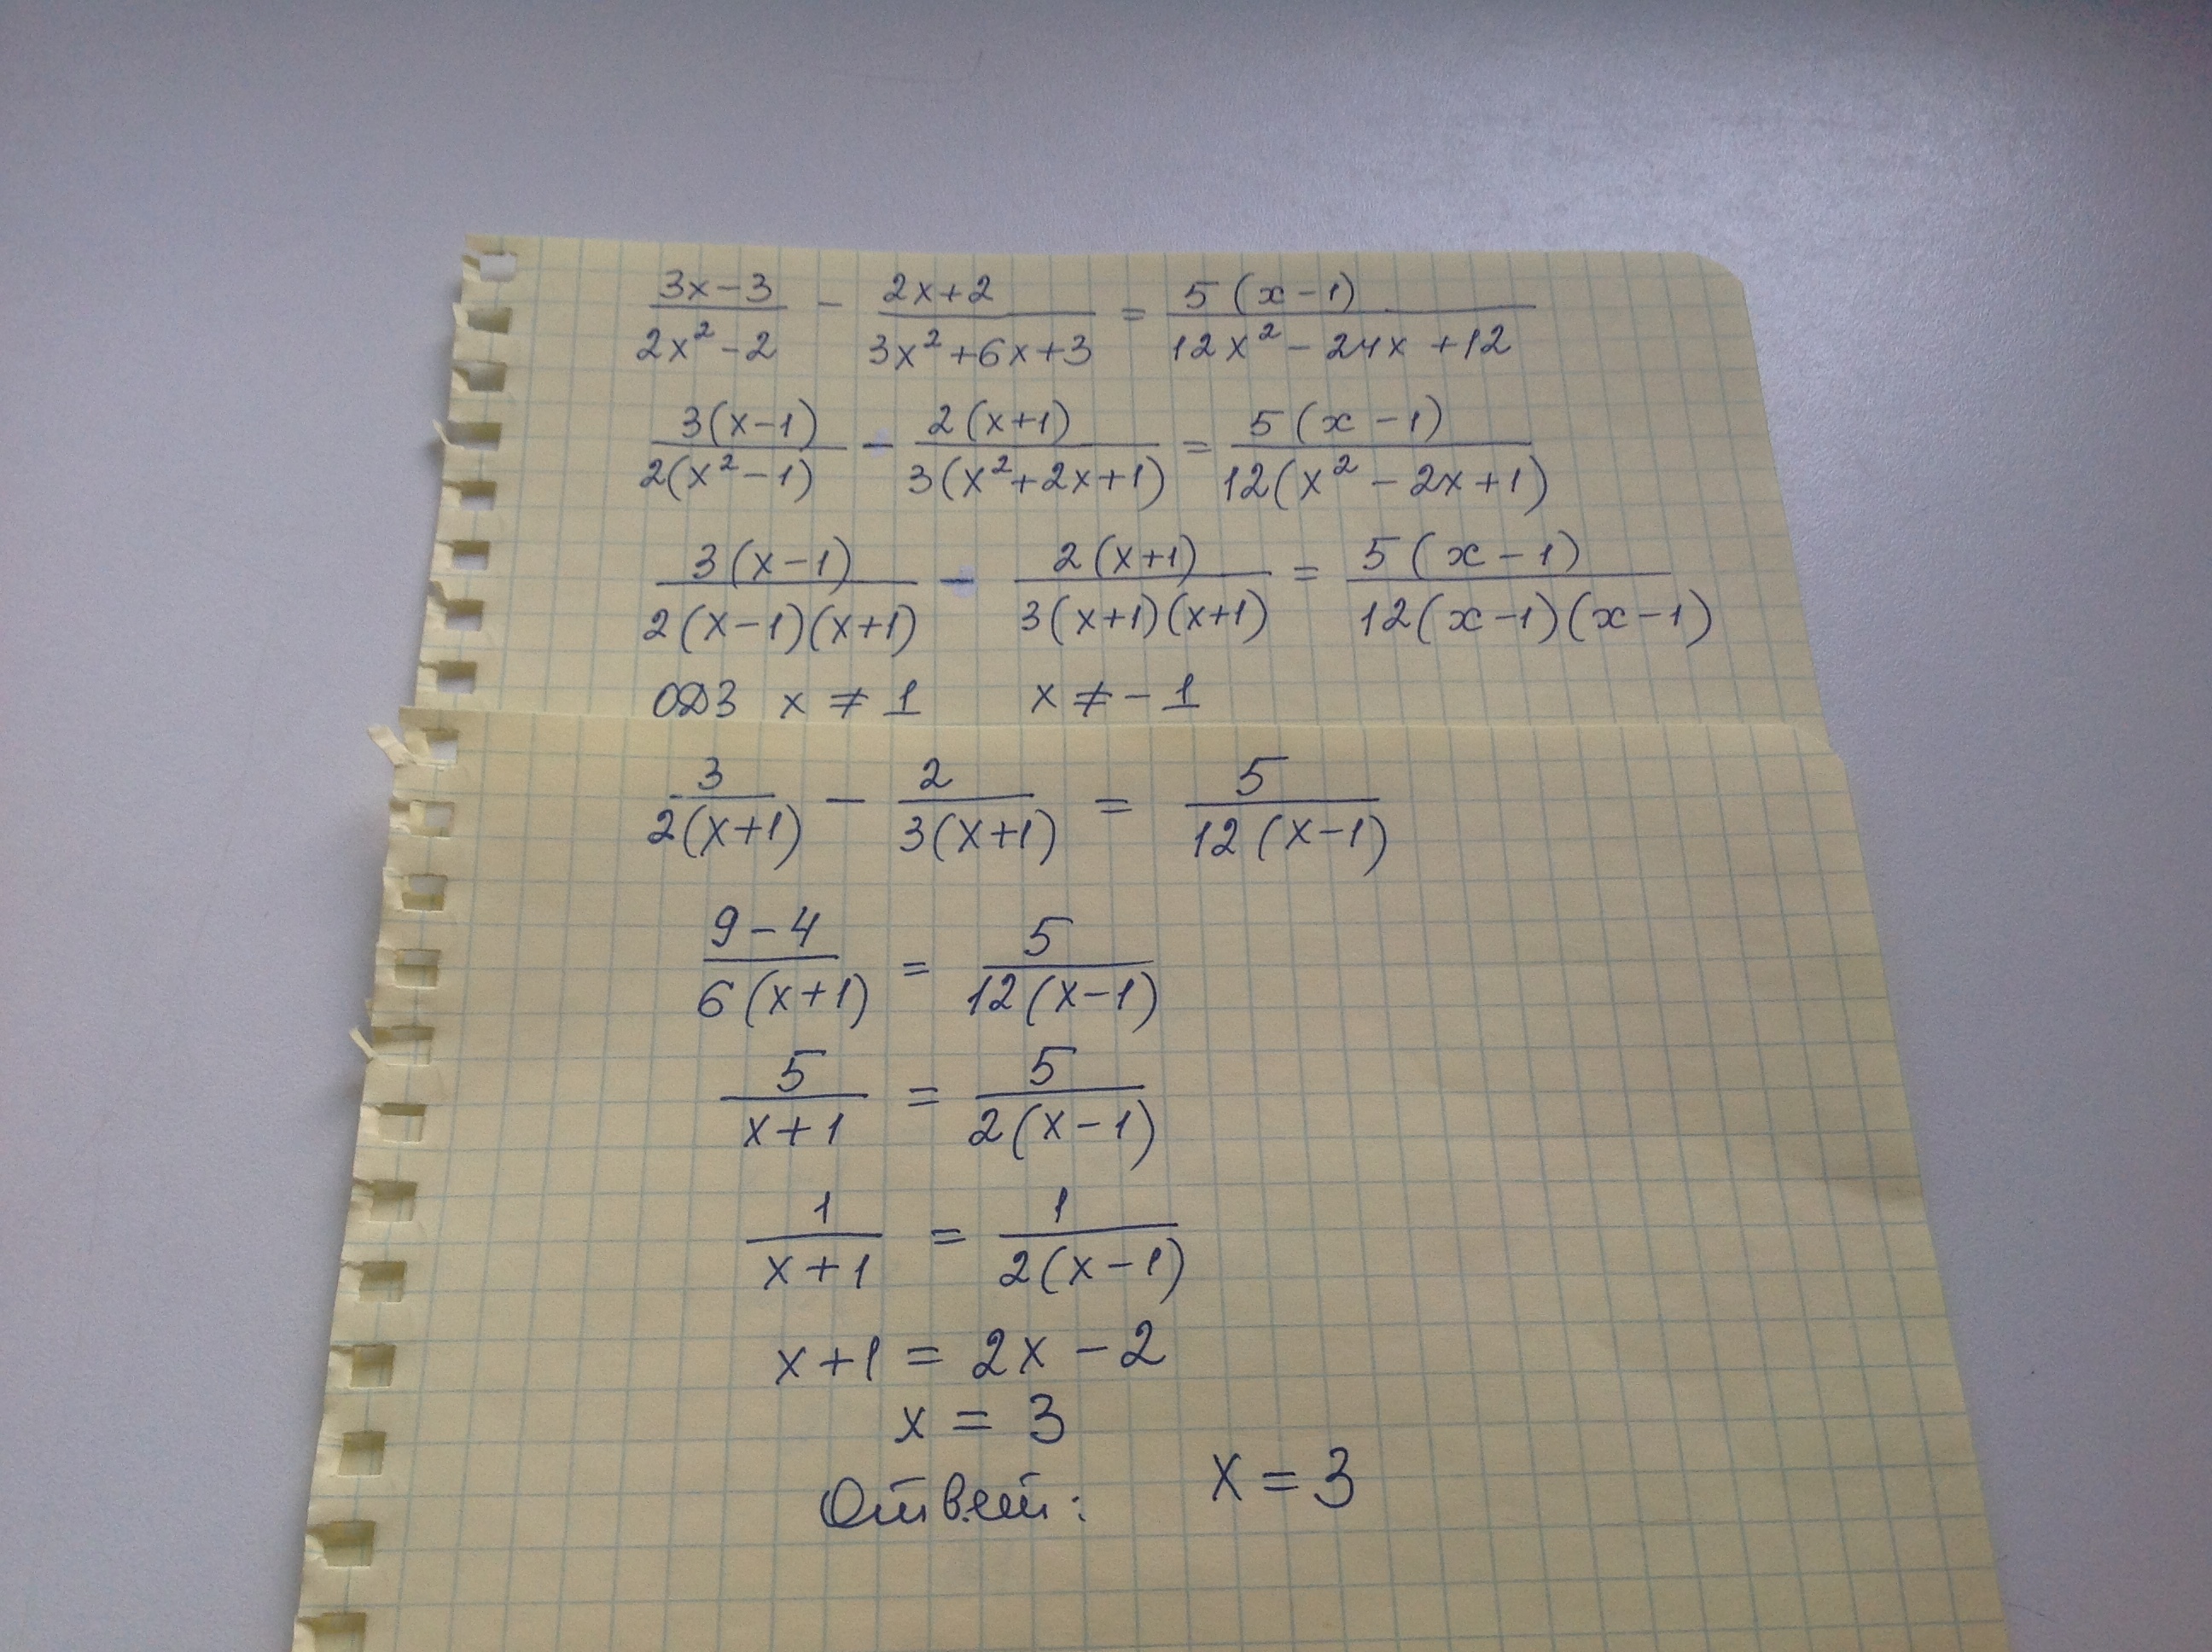 (3x-3)/(2x²-2) - (2x+2)/(3x²+6x+3) = 5(x-1)/(12x²-24x+12)
3(x-1)/2(x²-1) - 2(x+1)/3(x²+2x+1) = 5(x-1)/12(x²-2x+1)
3(x-1)/2(x-1)(x+1) - 2(x+1)/3(x+1)(x+1) = 5(x-1)/12(x-1)(x-1)
ОДЗ x ≠ 1 x ≠ -1
3/2(x+1) - 2/3(x+1) = 5/12(x-1)
(9-4)/6(x+1) = 5/12(x-1)
5/(x+1) = 5/2(x-1)
1/(x+1) = 1/2(x-1)
x+1 = 2x-2
x = 3
Ответ: x = 3